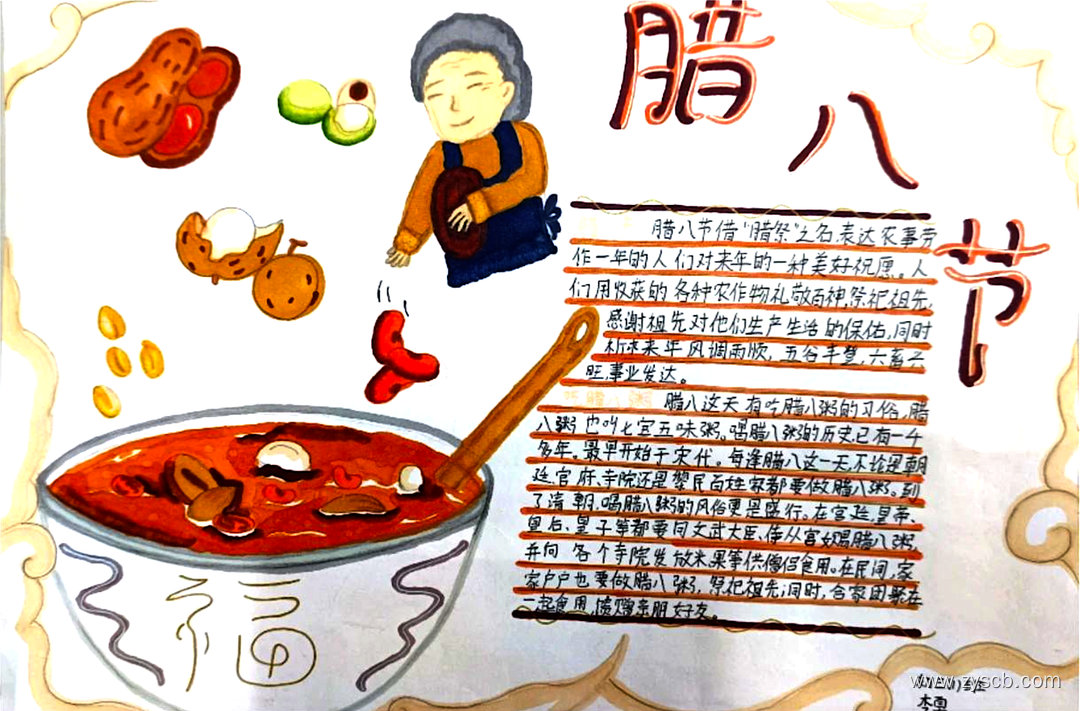 腊八节
腊八节借“腊祭”之名,表达农事劳
作一年的人们对来年的一种美好祝愿。人
们用收获的各种农作物礼敬百神,祭祀祖先,
感谢祖先对他们生产生活的保佑,同时
祈求来年风调雨顺,五谷丰登,六畜兴
旺,事业发达。
腊八这天有吃腊八粥的习俗,腊
八粥也叫七宝五味粥。喝腊八粥的历史,已有一千
多年。最早开始于宋代。每逢腊八这一天,不论是朝
廷、官府、寺院还是黎民百姓家都要做腊八粥。到
了清朝,喝腊八粥的风俗更是盛行。在宫廷,皇帝、
皇后、皇子等都要向文武大臣、侍从宫女赐腊八粥,
并向各个寺院发放米果等供僧侣食用。在民间,家
家户户也要做腊八粥,祭祀祖先;同时,合家团聚在
一起食用,馈赠亲朋好友。
福
www.zyscb.com